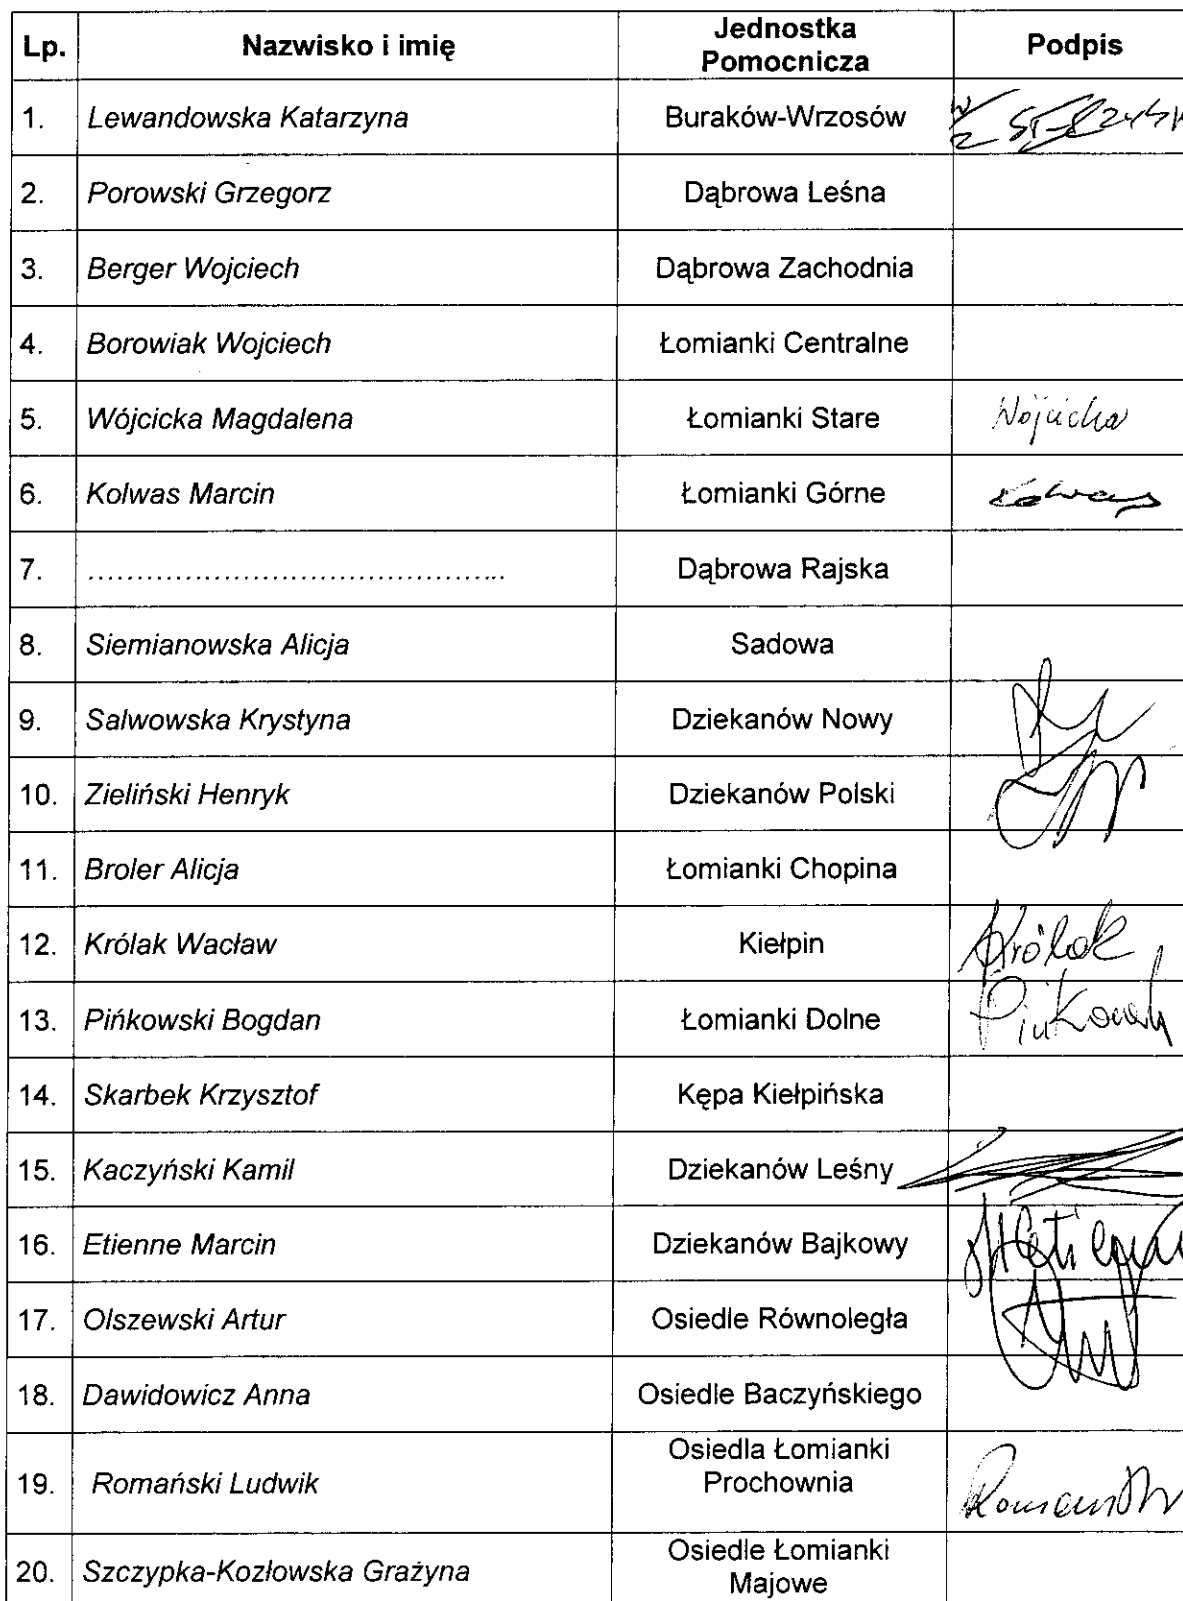 Lp. Nazwisko i imię Jednostka Pomocnicza Podpis
1. Lewandowska Katarzyna Buraków-Wrzosów
2. Porowski Grzegorz Dąbrowa Leśna
3. Berger Wojciech Dąbrowa Zachodnia
4. Borowiak Wojciech Łomianki Centralne
5. Wójcicka Magdalena Łomianki Stare Wójcicka
6. Kolwas Marcin Łomianki Górne Kolwas
7. .......................................... Dąbrowa Rajska
8. Siemianowska Alicja Sadowa
9. Salwowska Krystyna Dziekanów Nowy
10. Zieliński Henryk Dziekanów Polski
11. Broler Alicja Łomianki Chopina
12. Królak Wacław Kiełpin Królak
13. Pińkowski Bogdan Łomianki Dolne
14. Skarbek Krzysztof Kępa Kiełpińska
15. Kaczyński Kamil Dziekanów Leśny
16. Etienne Marcin Dziekanów Bajkowy
17. Olszewski Artur Osiedle Równoległa
18. Dawidowicz Anna Osiedle Baczyńskiego
19. Romański Ludwik Osiedla Łomianki Prochownia
20. Szczypka-Kozłowska Grażyna Osiedle Łomianki Majowe